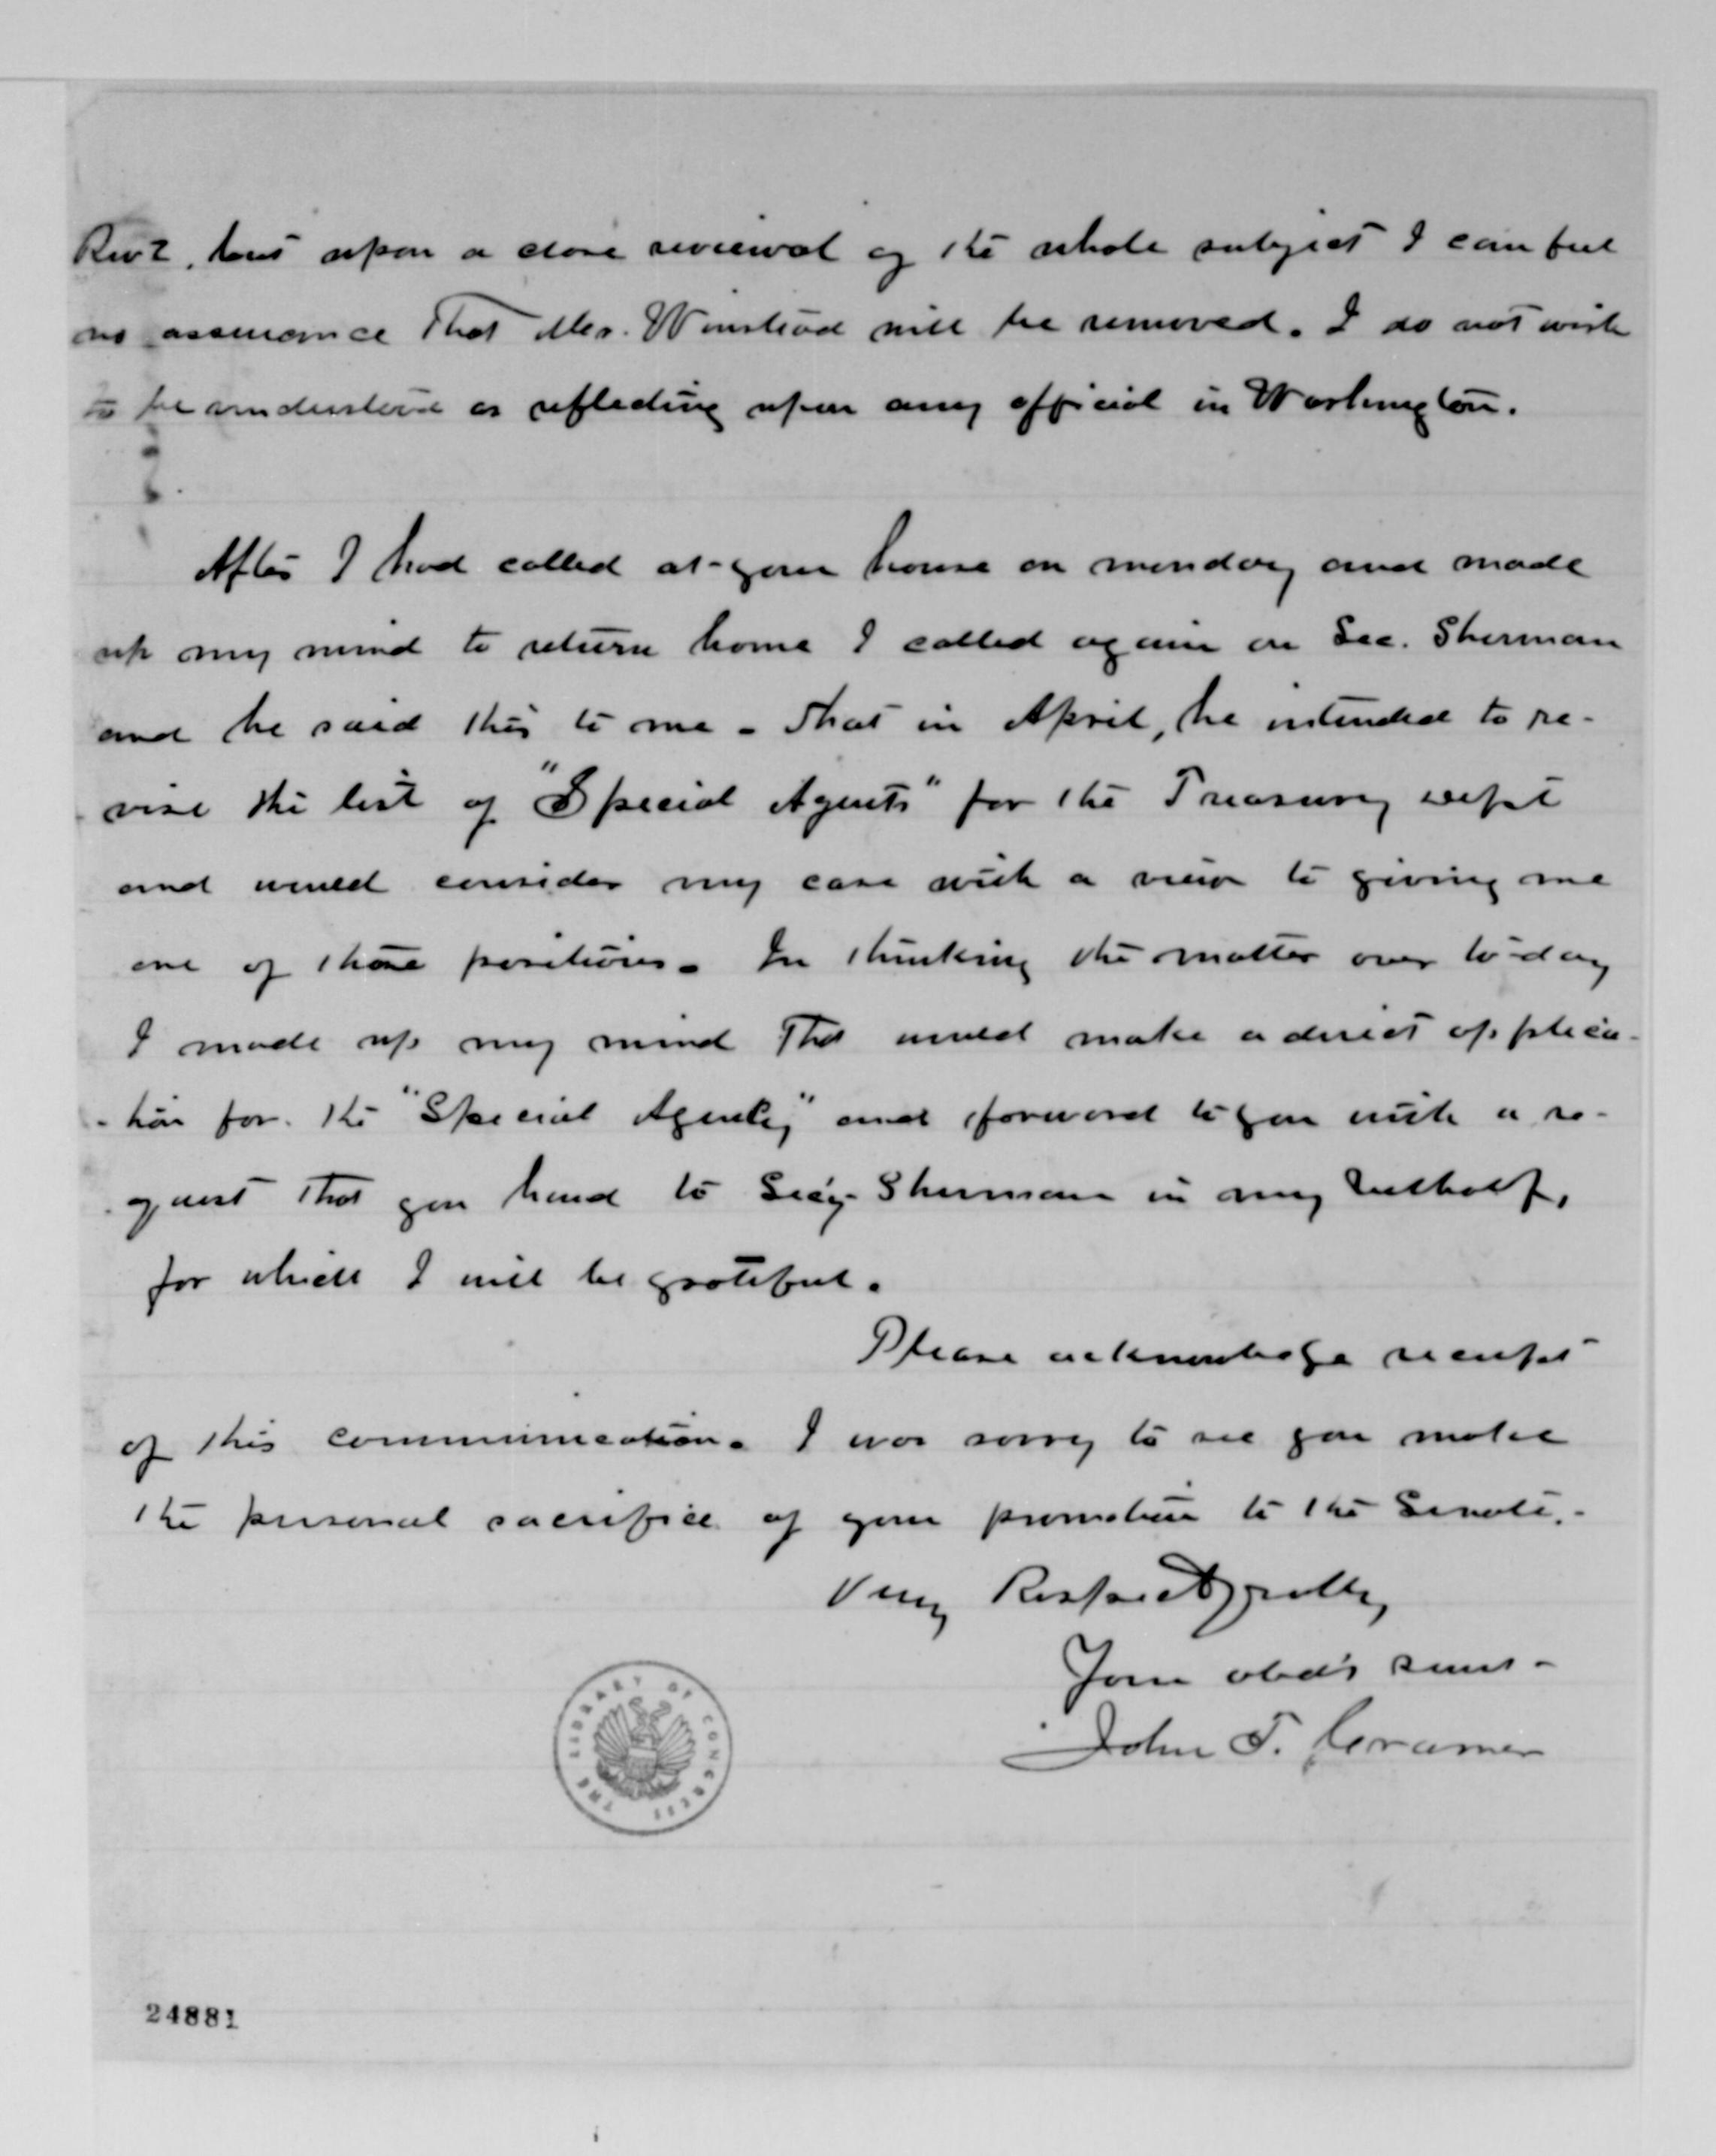 Rev?, but upon a close reviewal of the whole subject I can feel
no assurance that Mr. Winstead will be removed. I do not wish
to be understood as reflecting upon any official in Washington.
After I had called at your house on monday and made
up my mind to return home I called again on Sec. Sherman
and he said this to me - That in April, he intended to re-
vise the list of "Special Agents" for the Treasury Dept
and would consider my case with a view to giving me
one of those positions. In thinking the matter over to-day
I made up my mind that would make a direct applica-
-tion for the "Special Agency" and forward to you with a re-
quest that you hand to Sec'y Sherman in my behalf,
for which I will be grateful.
Please acknowledge receipt
of this communication. I was sorry to see you make
the personal sacrifice of your promotion to the Senate.-
Very Respectfully,
Your obd't servt-
John T. Cramer
THE LIBRARY OF CONGRESS
24881